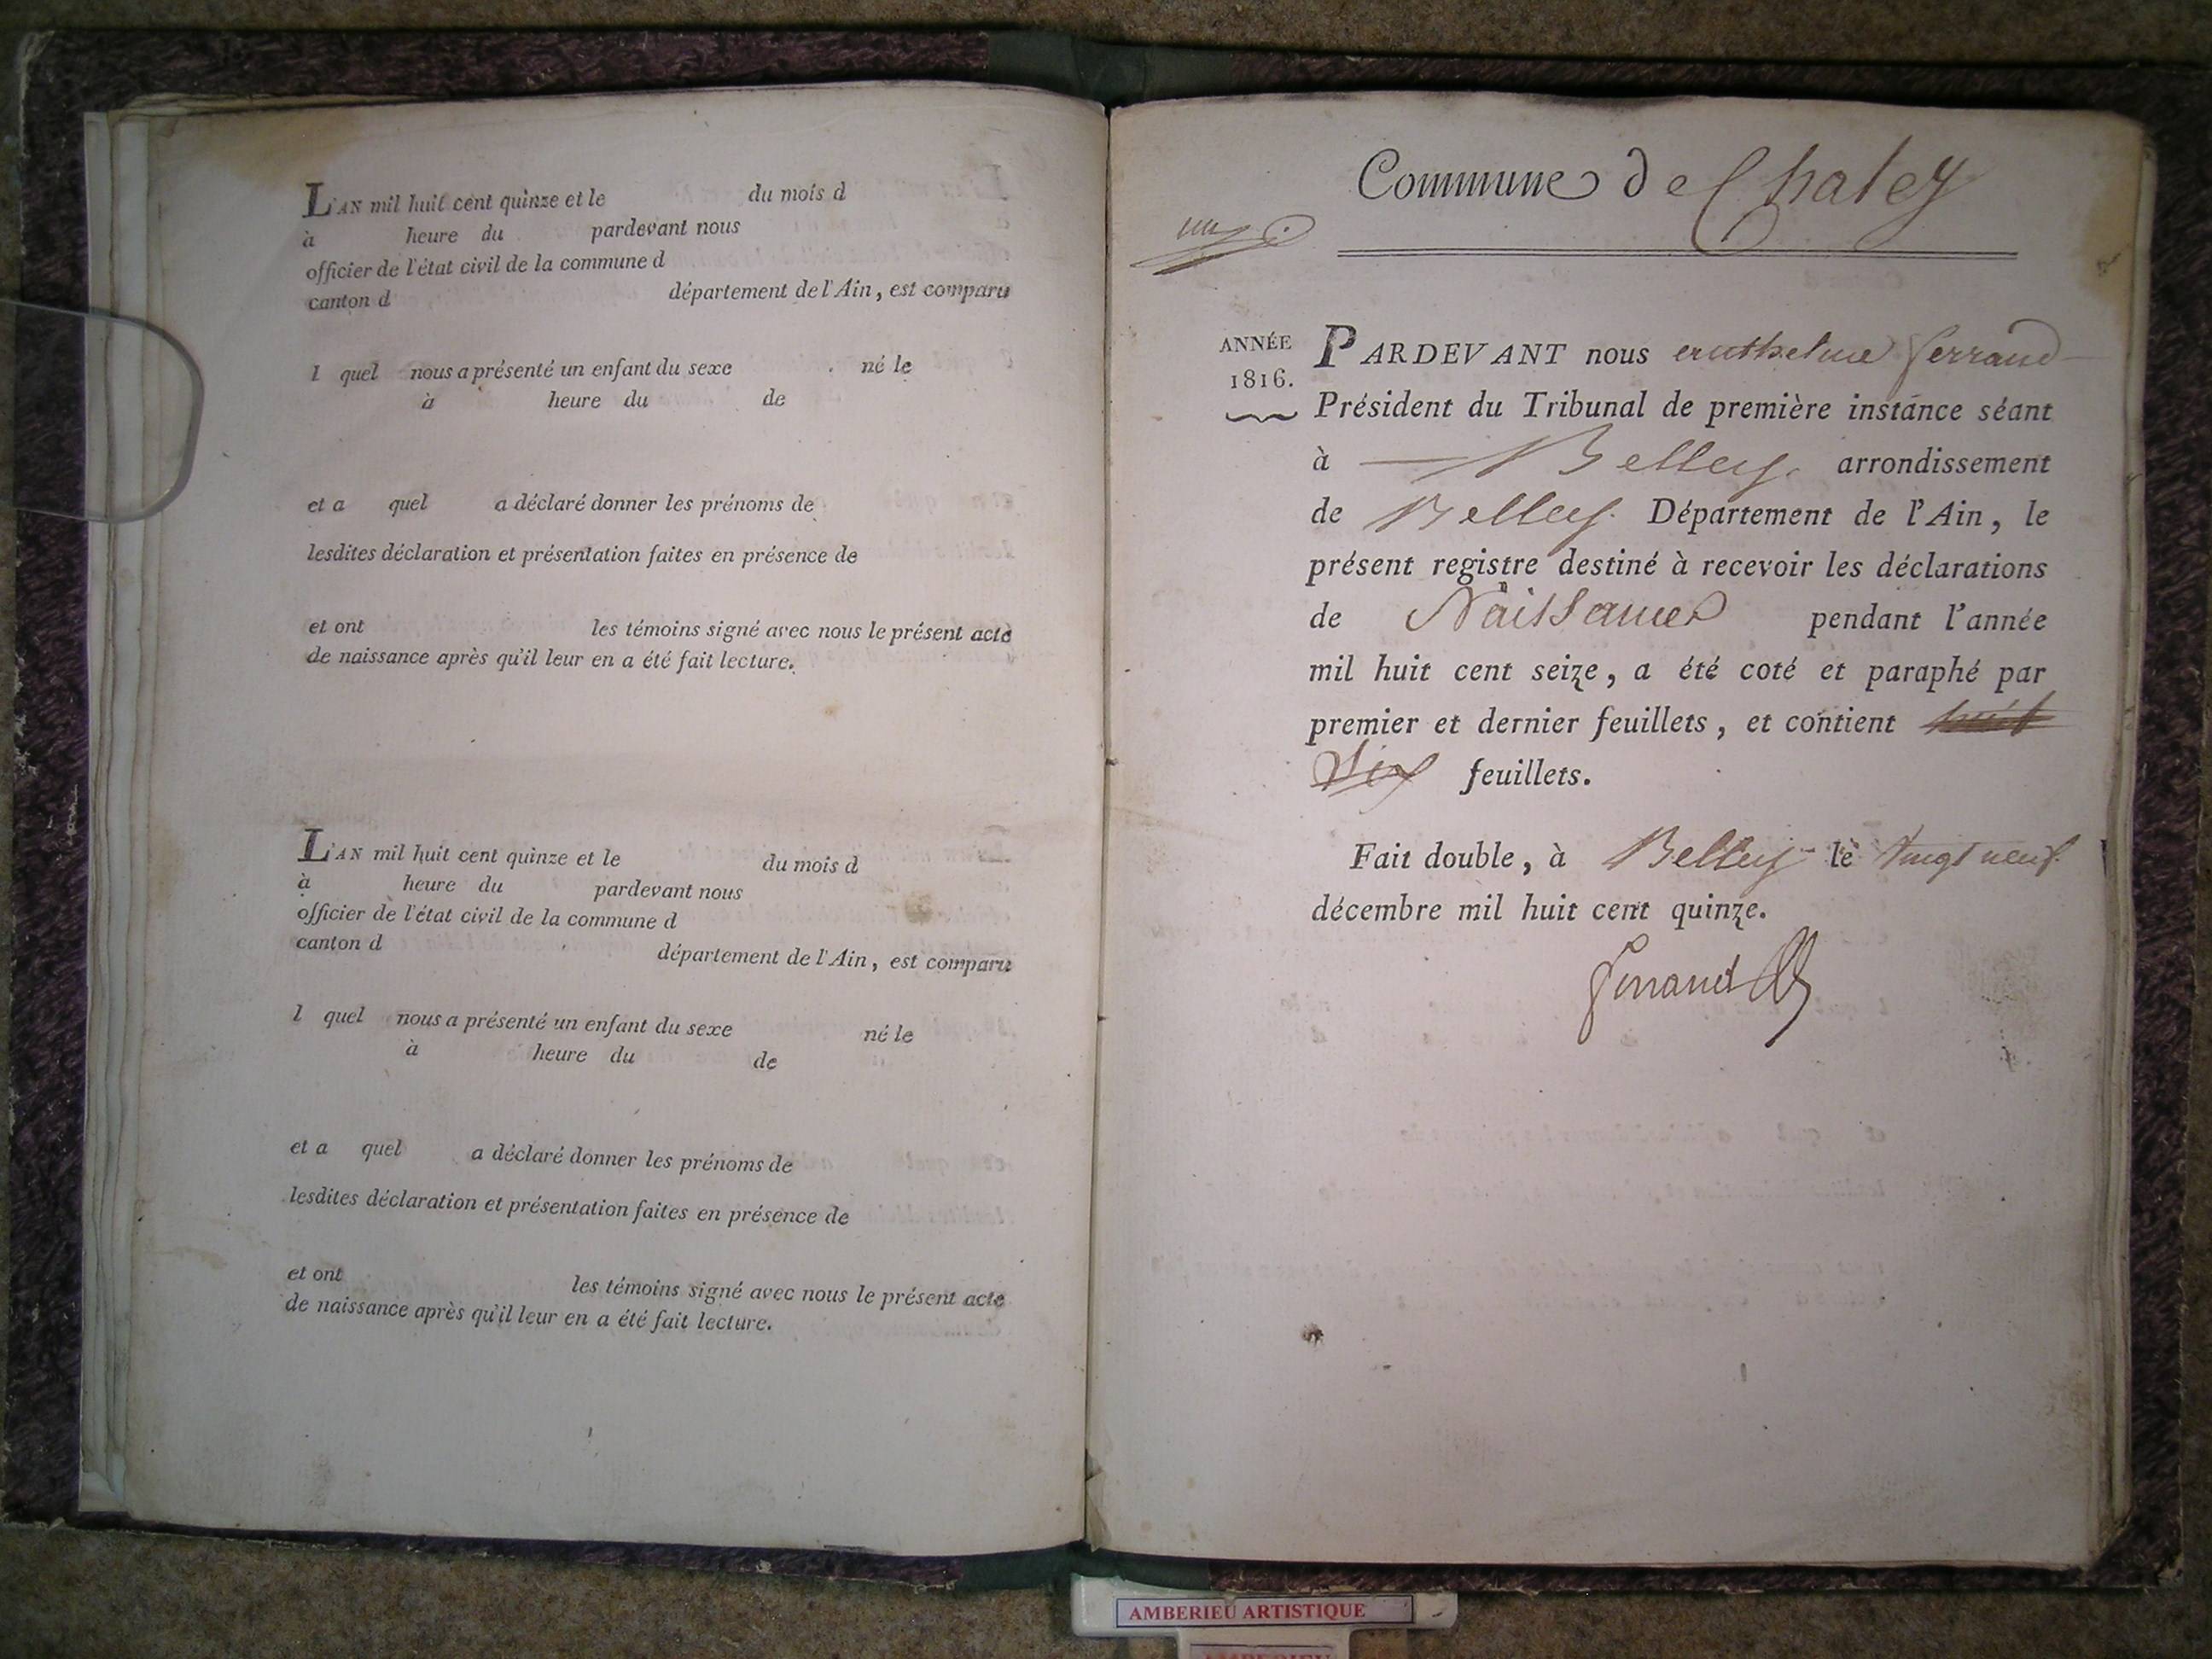 L'AN mil huit cent quinze et le du mois d
à heure du pardevant nous
officier de l'état civil de la commune d
canton d département de l'Ain, est comparu
l quel nous a présenté un enfant du sexe né le
à heure du de
et a quel a déclaré donner les prénoms de
lesdites déclaration et présentation faites en présence de
et ont les témoins signé avec nous le présent acte
de naissance après qu'il leur en a été fait lecture.
L'AN mil huit cent quinze et le du mois d
à heure du pardevant nous
officier de l'état civil de la commune d
canton d département de l'Ain, est comparu
l quel nous a présenté un enfant du sexe né le
à heure du de
et a quel a déclaré donner les prénoms de
lesdites déclaration et présentation faites en présence de
et ont les témoins signé avec nous le présent acte
de naissance après qu'il leur en a été fait lecture.
Commune de Chaley
ANNÉE
1816.
PARDEVANT nous anthelme ferrand
Président du Tribunal de première instance séant
à Belley. arrondissement
de Belley. Département de l'Ain, le
présent registre destiné à recevoir les déclarations
de Naissances pendant l'année
mil huit cent seize, a été coté et paraphé par
premier et dernier feuillets, et contient huit
six feuillets.
Fait double, à Belley le vingt neuf
décembre mil huit cent quinze.
ferrand
AMBERIEU ARTISTIQUE
AMBERIEU